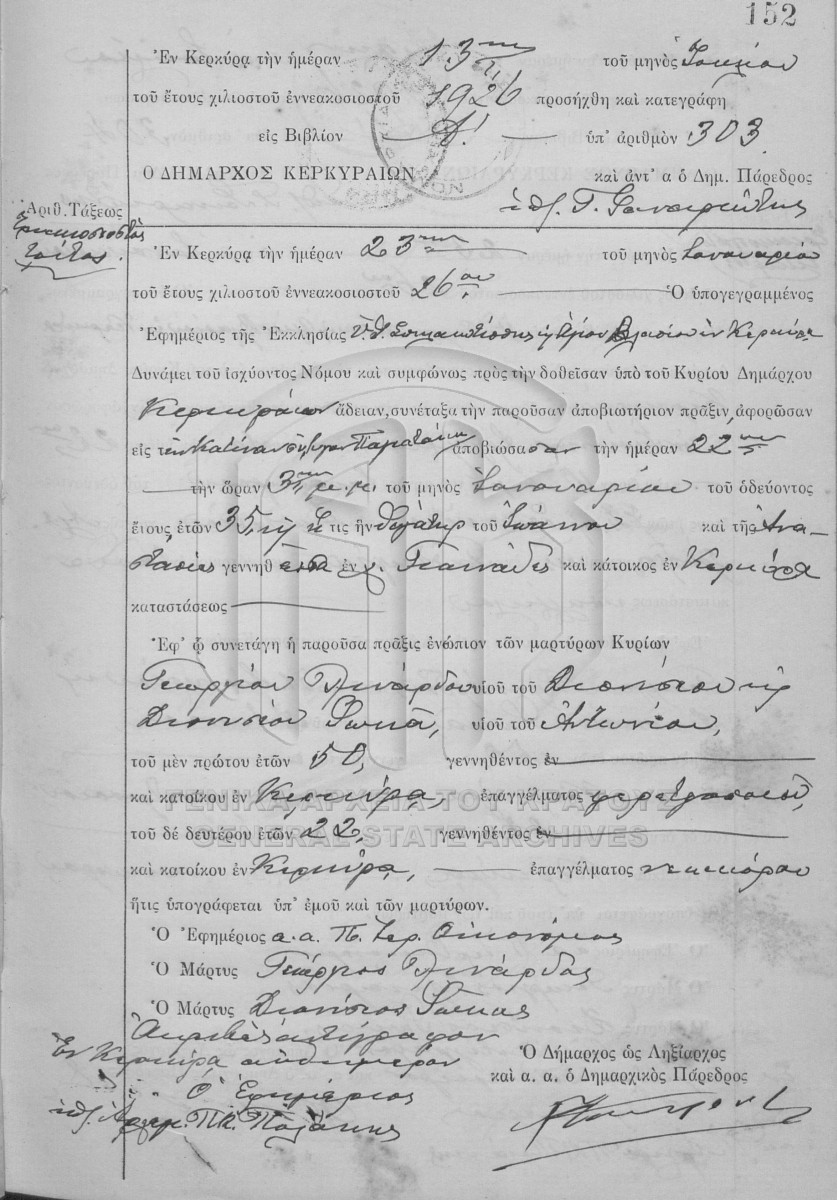 152
Ἐν Κερκύρᾳ τὴν ἡμέραν 13ην τοῦ μηνὸς Ἰουλίου
τοῦ ἔτους χιλιοστοῦ ἐννεακοσιοστοῦ 1926 προσήχθη καὶ κατεγράφη
εἰς Βιβλίον Α! ὑπ' ἀριθμὸν 303
Ο ΔΗΜΑΡΧΟΣ ΚΕΡΚΥΡΑΙΩΝ καὶ ἀντ' α ὁ Δημ. Πάρεδρος
Γ.
Ἀριθ. Τάξεως
τρίτος.
Ἐν Κερκύρᾳ τὴν ἡμέραν 23ην τοῦ μηνὸς Ἰανουαρίου
τοῦ ἔτους χιλιοστοῦ ἐννεακοσιοστοῦ 26ου Ὁ ὑπογεγραμμένος
Ἐφημέριος τῆς Ἐκκλησίας Ὑ.Θ. Σπηλαιωτίσσης Ἁγίου Βλασίου ἐν Κερκύρᾳ
Δυνάμει τοῦ ἰσχύοντος Νόμου καὶ συμφώνως πρὸς τὴν δοθεῖσαν ὑπὸ τοῦ Κυρίου Δημάρχου
Κερκυραίων ἄδειαν, συνέταξα τὴν παροῦσαν ἀποβιωτήριον πρᾶξιν, ἀφορῶσαν
εἰς τὴν Κατίναν ἀποβιώσασαν τὴν ἡμέραν 22αν
τὴν ὥραν 3ην μ.μ. τοῦ μηνὸς Ἰανουαρίου τοῦ ὁδεύοντος
ἔτους, ἐτῶν 35, τις ἦν θυγάτηρ τοῦ Ἰωάννου καὶ τῆς Ἀνα-
στασίας γεννηθεῖσα ἐν χ. Γιαννάδες καὶ κάτοικος ἐν Κερκύρᾳ
καταστάσεως
Ἐφ' ᾧ συνετάγη ἡ παροῦσα πρᾶξις ἐνώπιον τῶν μαρτύρων Κυρίων
Γεωργίου Λινάρδου υἱοῦ τοῦ Διονυσίου καὶ
Διονυσίου Σωκᾶ, υἱοῦ τοῦ Ἀντωνίου,
τοῦ μὲν πρώτου ἐτῶν 50, γεννηθέντος ἐν
καὶ κατοίκου ἐν Κερκύρᾳ, ἐπαγγέλματος φερετροποιοῦ,
τοῦ δέ δευτέρου ἐτῶν 22, γεννηθέντος ἐν
καὶ κατοίκου ἐν Κερκύρᾳ, ἐπαγγέλματος νεωκόρου
ἥτις ὑπογράφεται ὑπ' ἐμοῦ καὶ τῶν μαρτύρων.
Ὁ Ἐφημέριος α.α. Π. Ἱερ. Οἰκονόμος
Ὁ Μάρτυς Γεώργιος Λινάρδος
Ὁ Μάρτυς Διονύσιος Σωκᾶς
Ἀκριβὲς ἀντίγραφον
Ἐν Κερκύρᾳ αὐθημερόν
Ὁ Ἐφημέριος
Ὁ Δήμαρχος ὡς Ληξίαρχος
καὶ α. α. ὁ Δημαρχικὸς Πάρεδρος
ΓΕΝΙΚΑ ΑΡΧΕΙΑ ΤΟΥ ΚΡΑΤΟΥΣ
GENERAL STATE ARCHIVES